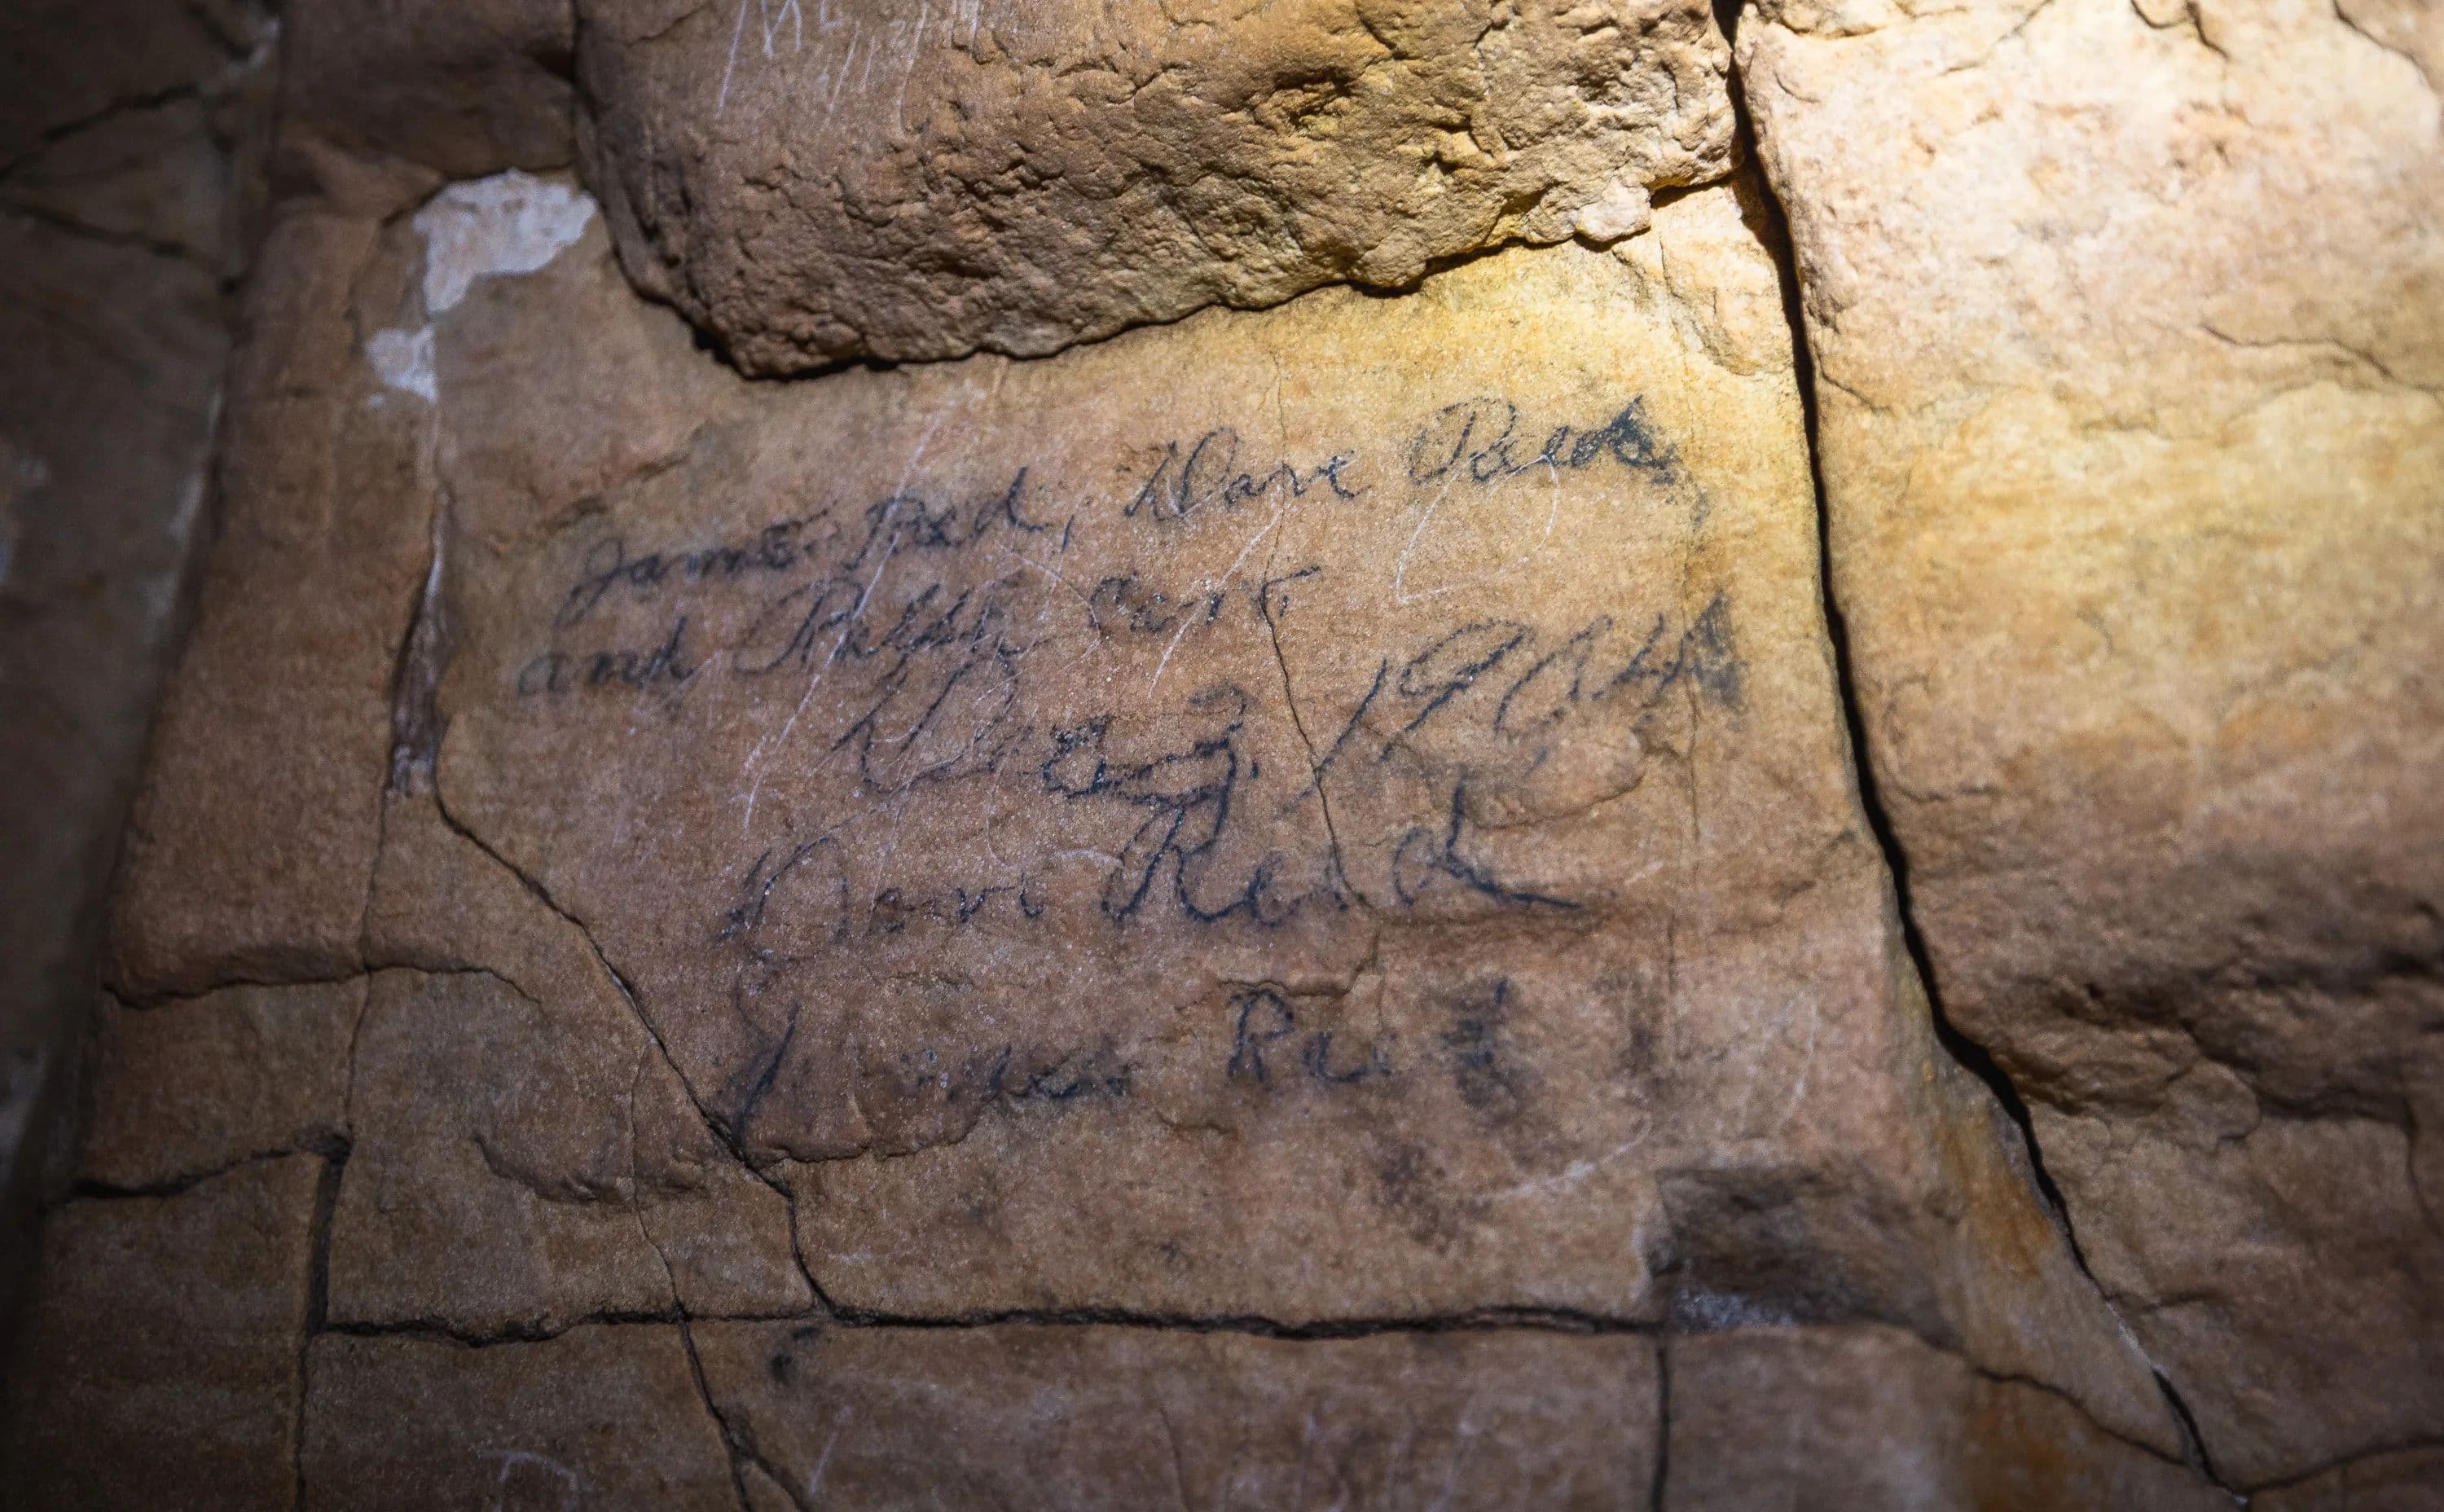 James Reid, Dave Reid
and Ralph
Dec 3, 1904
Dave Reid
James Reid